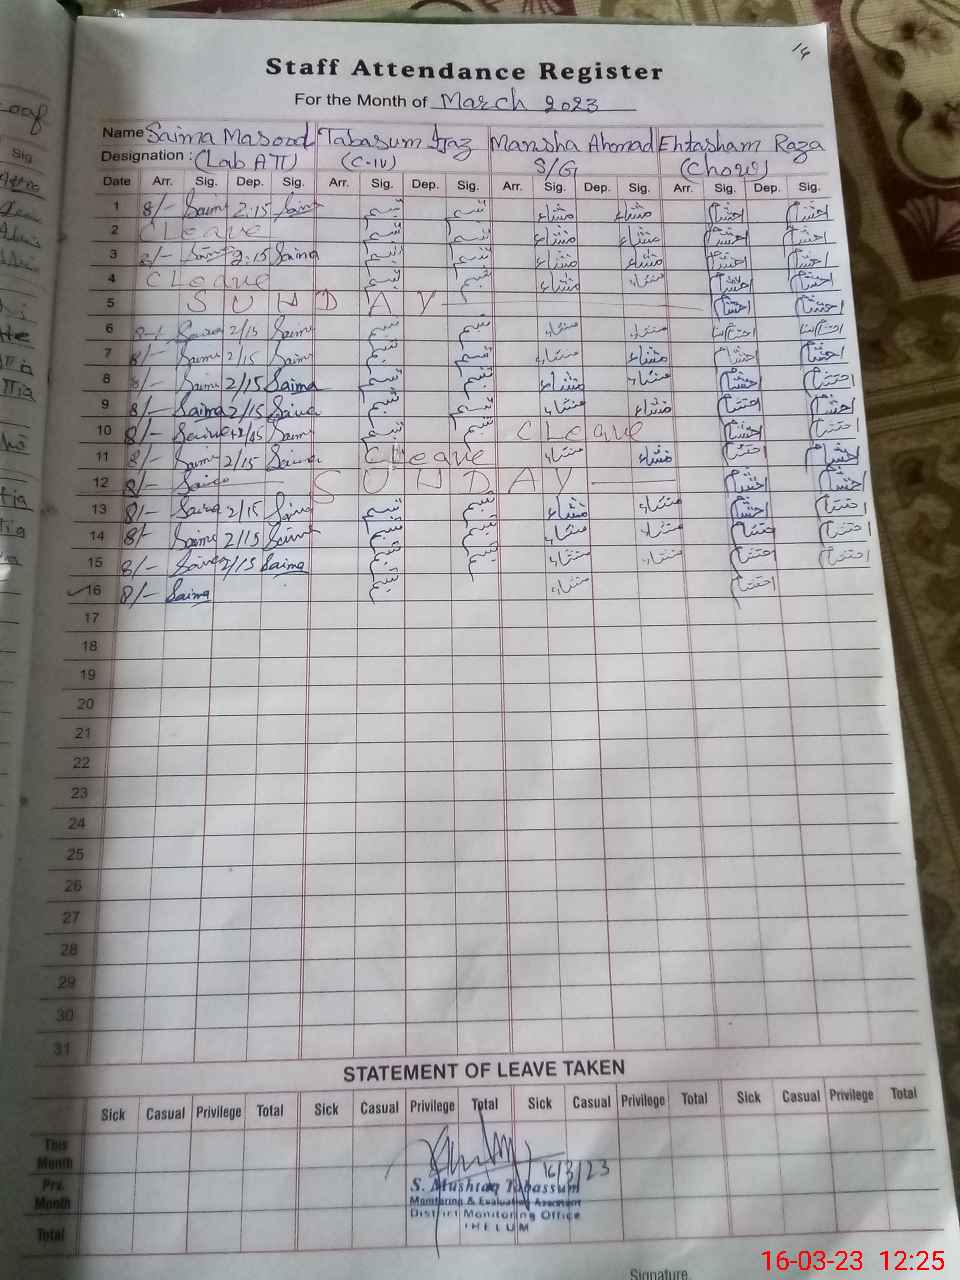 14
Staff Attendance Register
For the Month of March 2023
Name Saima Masood Tabasum Ijaz Mansha Ahmad Ehtasham Raza
Designation : (Lab ATT) (C-IV) S/G (Chow)
Date Arr. Sig. Dep. Sig. Arr. Sig. Dep. Sig. Arr. Sig. Dep. Sig. Arr. Sig. Dep. Sig.
1 8/- Saima 2:15 Saima تبسم تبسم منشاء منشاء احتشام احتشام
2 C Leave تبسم تبسم منشاء منشاء احتشام احتشام
3 8/- Saima 2:15 Saima تبسم تبسم منشاء منشاء احتشام احتشام
4 C Leave تبسم تبسم منشاء منشاء احتشام احتشام
5 SUNDAY احتشام احتشام
6 8-/ Saima 2/15 Saima تبسم تبسم منشاء منشاء احتشام احتشام
7 8/- Saima 2/15 Saima تبسم تبسم منشاء منشاء احتشام احتشام
8 8/- Saima 2/15 Saima تبسم تبسم منشاء منشاء احتشام احتشام
9 8/- Saima 2/15 Saima تبسم تبسم منشاء منشاء احتشام احتشام
10 8/- Saima 2/15 Saima تبسم تبسم C Leave احتشام احتشام
11 8/- Saima 2/15 Saima C Leave منشاء منشاء احتشام احتشام
12 8/- Saima SUNDAY احتشام احتشام
13 8/- Saima 2/15 Saima تبسم تبسم منشاء منشاء احتشام احتشام
14 8/- Saima 2/15 Saima تبسم تبسم منشاء منشاء احتشام احتشام
15 8/- Saima 2/15 Saima تبسم تبسم منشاء منشاء احتشام احتشام
16 8/- Saima تبسم منشاء احتشام
17
18
19
20
21
22
23
24
25
26
27
28
29
30
31
STATEMENT OF LEAVE TAKEN
Sick Casual Privilege Total Sick Casual Privilege Total Sick Casual Privilege Total Sick Casual Privilege Total
This Month
16/3/23
Prv. Month
S. Mushtaq Tabassum
Monitoring & Evaluation Assistant
District Monitoring Office
JHELUM
Total
Signature.
16-03-23 12:25